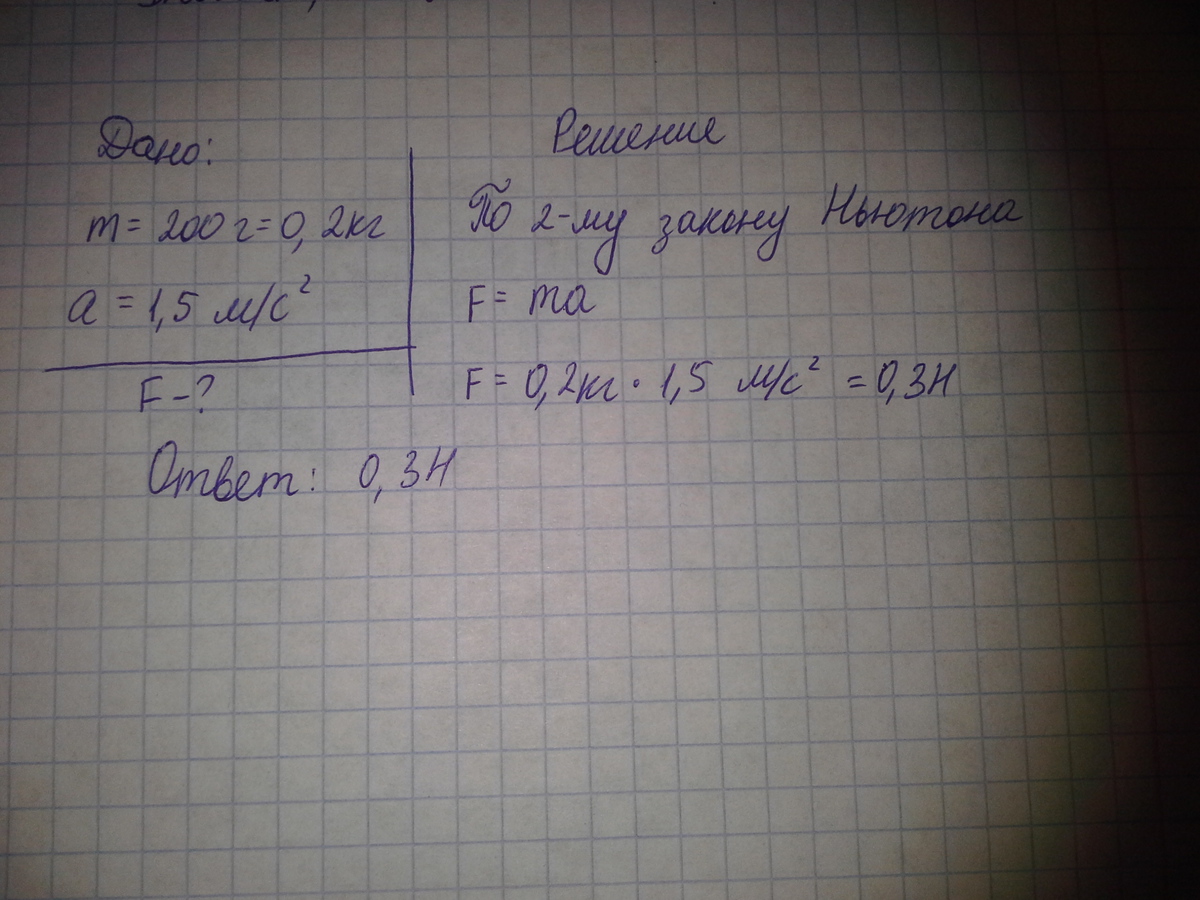 Дано:
m = 200 г = 0,2кг
a = 1,5 м/с²
F - ?
Решение
По 2-му закону Ньютона
F = ma
F = 0,2кг · 1,5 м/с² = 0,3Н
Ответ: 0,3Н